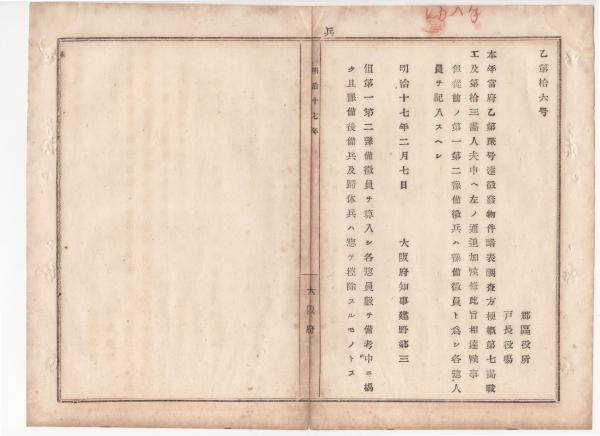 乙第拾六号
郡區役所
戸長役場
本年當府乙第貳号達徴發物件略表調査方梗概第七備職
工及第拾三備人夫中ヘ左ノ通追加候條此旨相達候事
但從前ノ第一第二豫備徴兵ハ豫備徴員ト爲シ各惣人
員ヲ記入スヘシ
明治十七年二月七日
大阪府知事建野郷三
但第一第二豫備徴員ヲ算入シ各惣員數ヲ備考中ニ揭
ク且豫備後備兵及歸休兵ハ惣テ控除スルモノトス
兵
明治十七年
大阪府